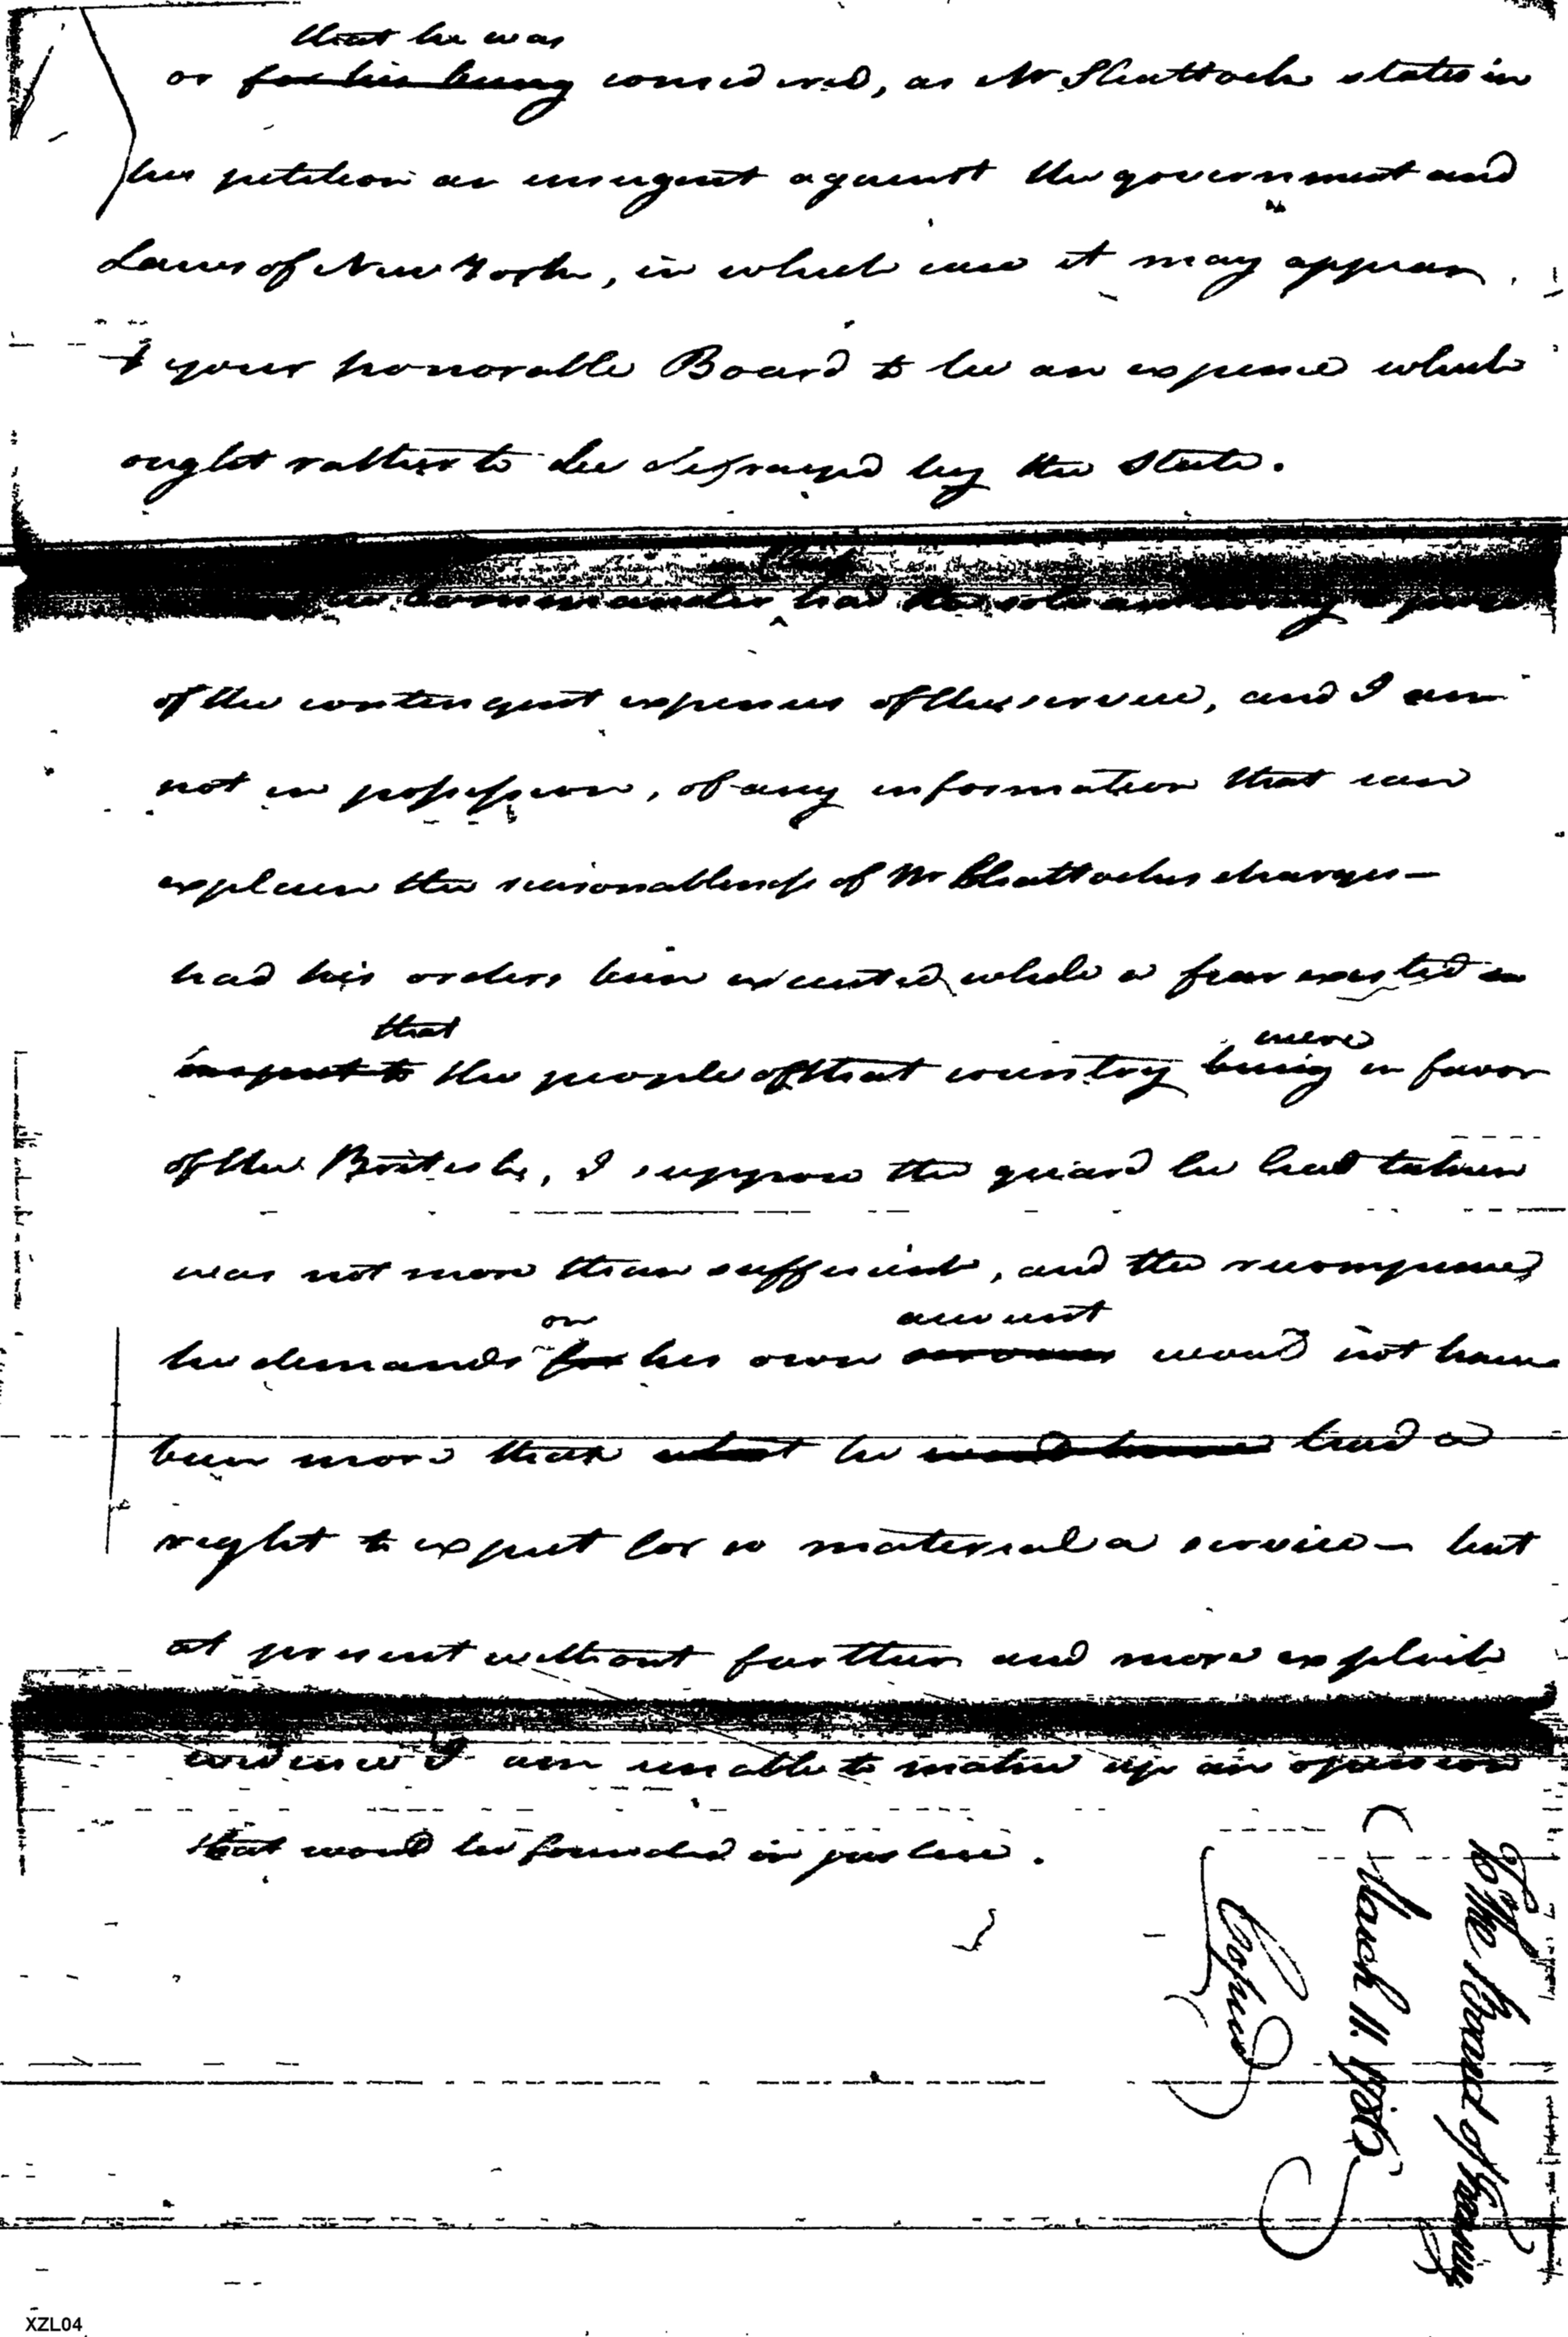 that he was
or for his being considered, as Mr Shattock states in
his petition an insurgent against the government and
Laws of New York, in which case it may appear
to your honorable Board to be an expence which
ought rather to be defrayed by the State.
commander had the sole
of the contingent expences of the service, and I am
not in possession, of any information that can
explain the reasonableness of Mr Shattocks charges—
had his orders been executed while a fear existed
that were
the people of that country being in favor
of the British, I suppose the guard he had taken
was not more than sufficient, and the recompence
on account
he demands for his own services would not have
been more than what he would have had a
right to expect for so material a service— but
at present without further and more explicit
evidence I am unable to make up an opinion
that would be founded in justice.
To the Board of Treasury
March 11. 1785
Copied
XZL04